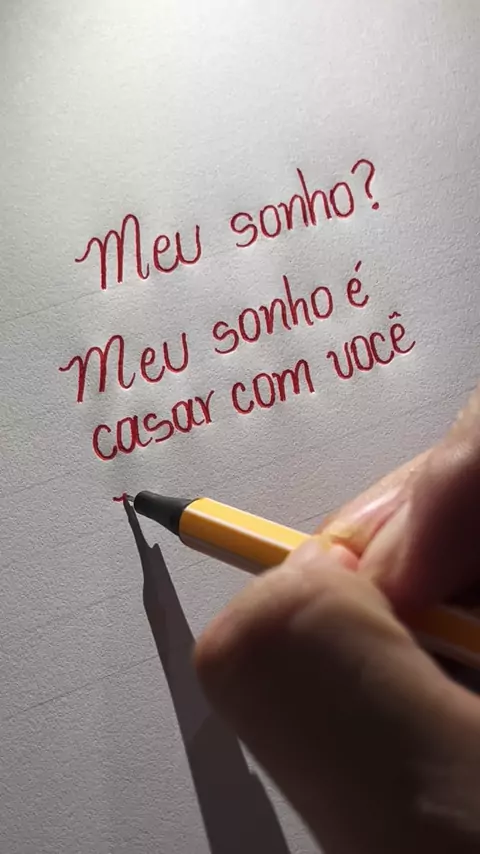 Meu sonho?
Meu sonho é
casar com você